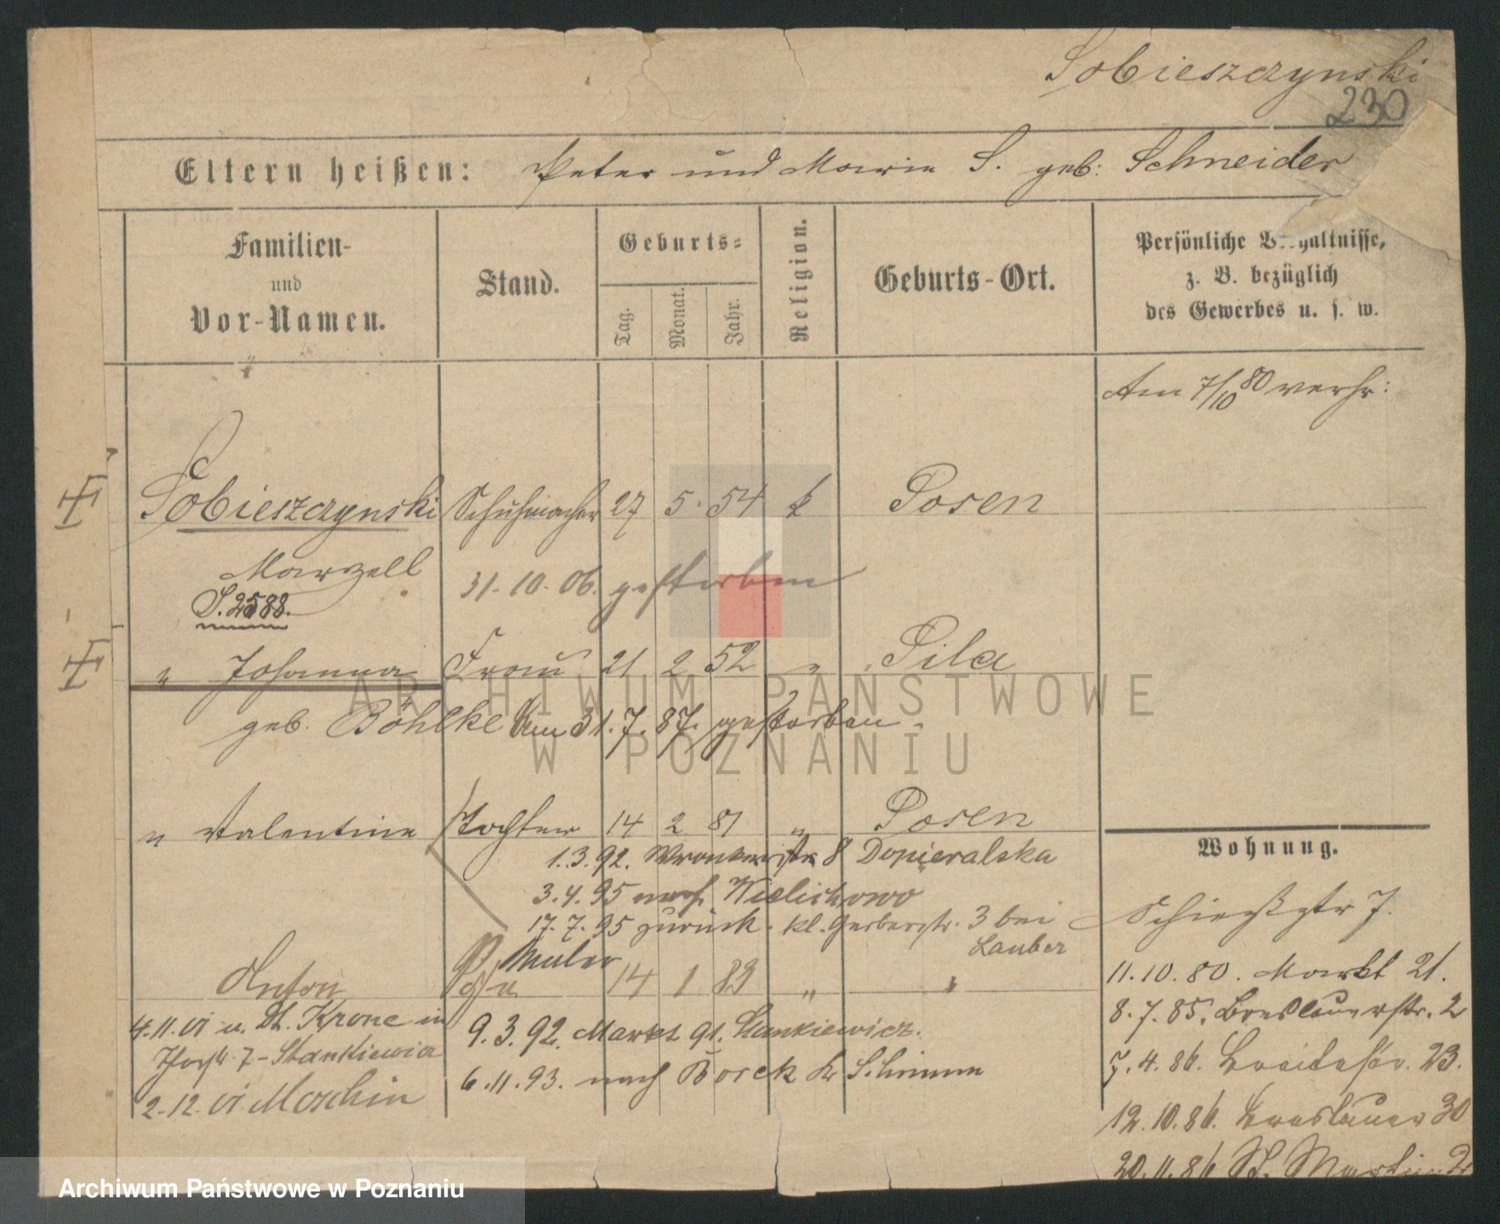 Sobieszczynski
230
Eltern heißen: Peter und Marie S. geb: Schneider
Familien- und Vor-Namen.
Stand.
Geburts-
Tag.
Monat.
Jahr.
Religion.
Geburts-Ort.
Persönliche Verhältnisse,
z. B. bezüglich
des Gewerbes u. s. w.
Am 7/10 80 verhr:
Sobieszczynski Schuhmacher 27 5 54 k Posen
Marzell 31. 10. 06. gestorben
S. 2588.
" Johanna Frau 21 2 52 " Pila
geb. Böhlke Am 31. 7. 87. gestorben.
" Valentine Tochter 14 2 81 " Posen
1. 3. 92. 8 Dopieralska
3. 4. 95 nach Wielichowo
17. 7. 95 zurück. kl. Gerberstr. 3 bei
Lauber
Maler
Anton 14 1 83 " "
4. 11. 01 u. Dt. Krone in
7 - Stankiewicz
2. 12. 01 Moschin
9. 3. 92. Markt 91. Stankiewicz.
6. 11. 93. nach Borek Kr Schrimm
Wohnung.
Schießstr 7.
11. 10. 80. Markt 21.
8. 7. 85. Breslauerstr. 2
7. 4. 86. Breitestr. 23.
12. 10. 86. Breslauer 30
20. 11. 86 St. Martin
ARCHIWUM PAŃSTWOWE
W POZNANIU
Archiwum Państwowe w Poznaniu